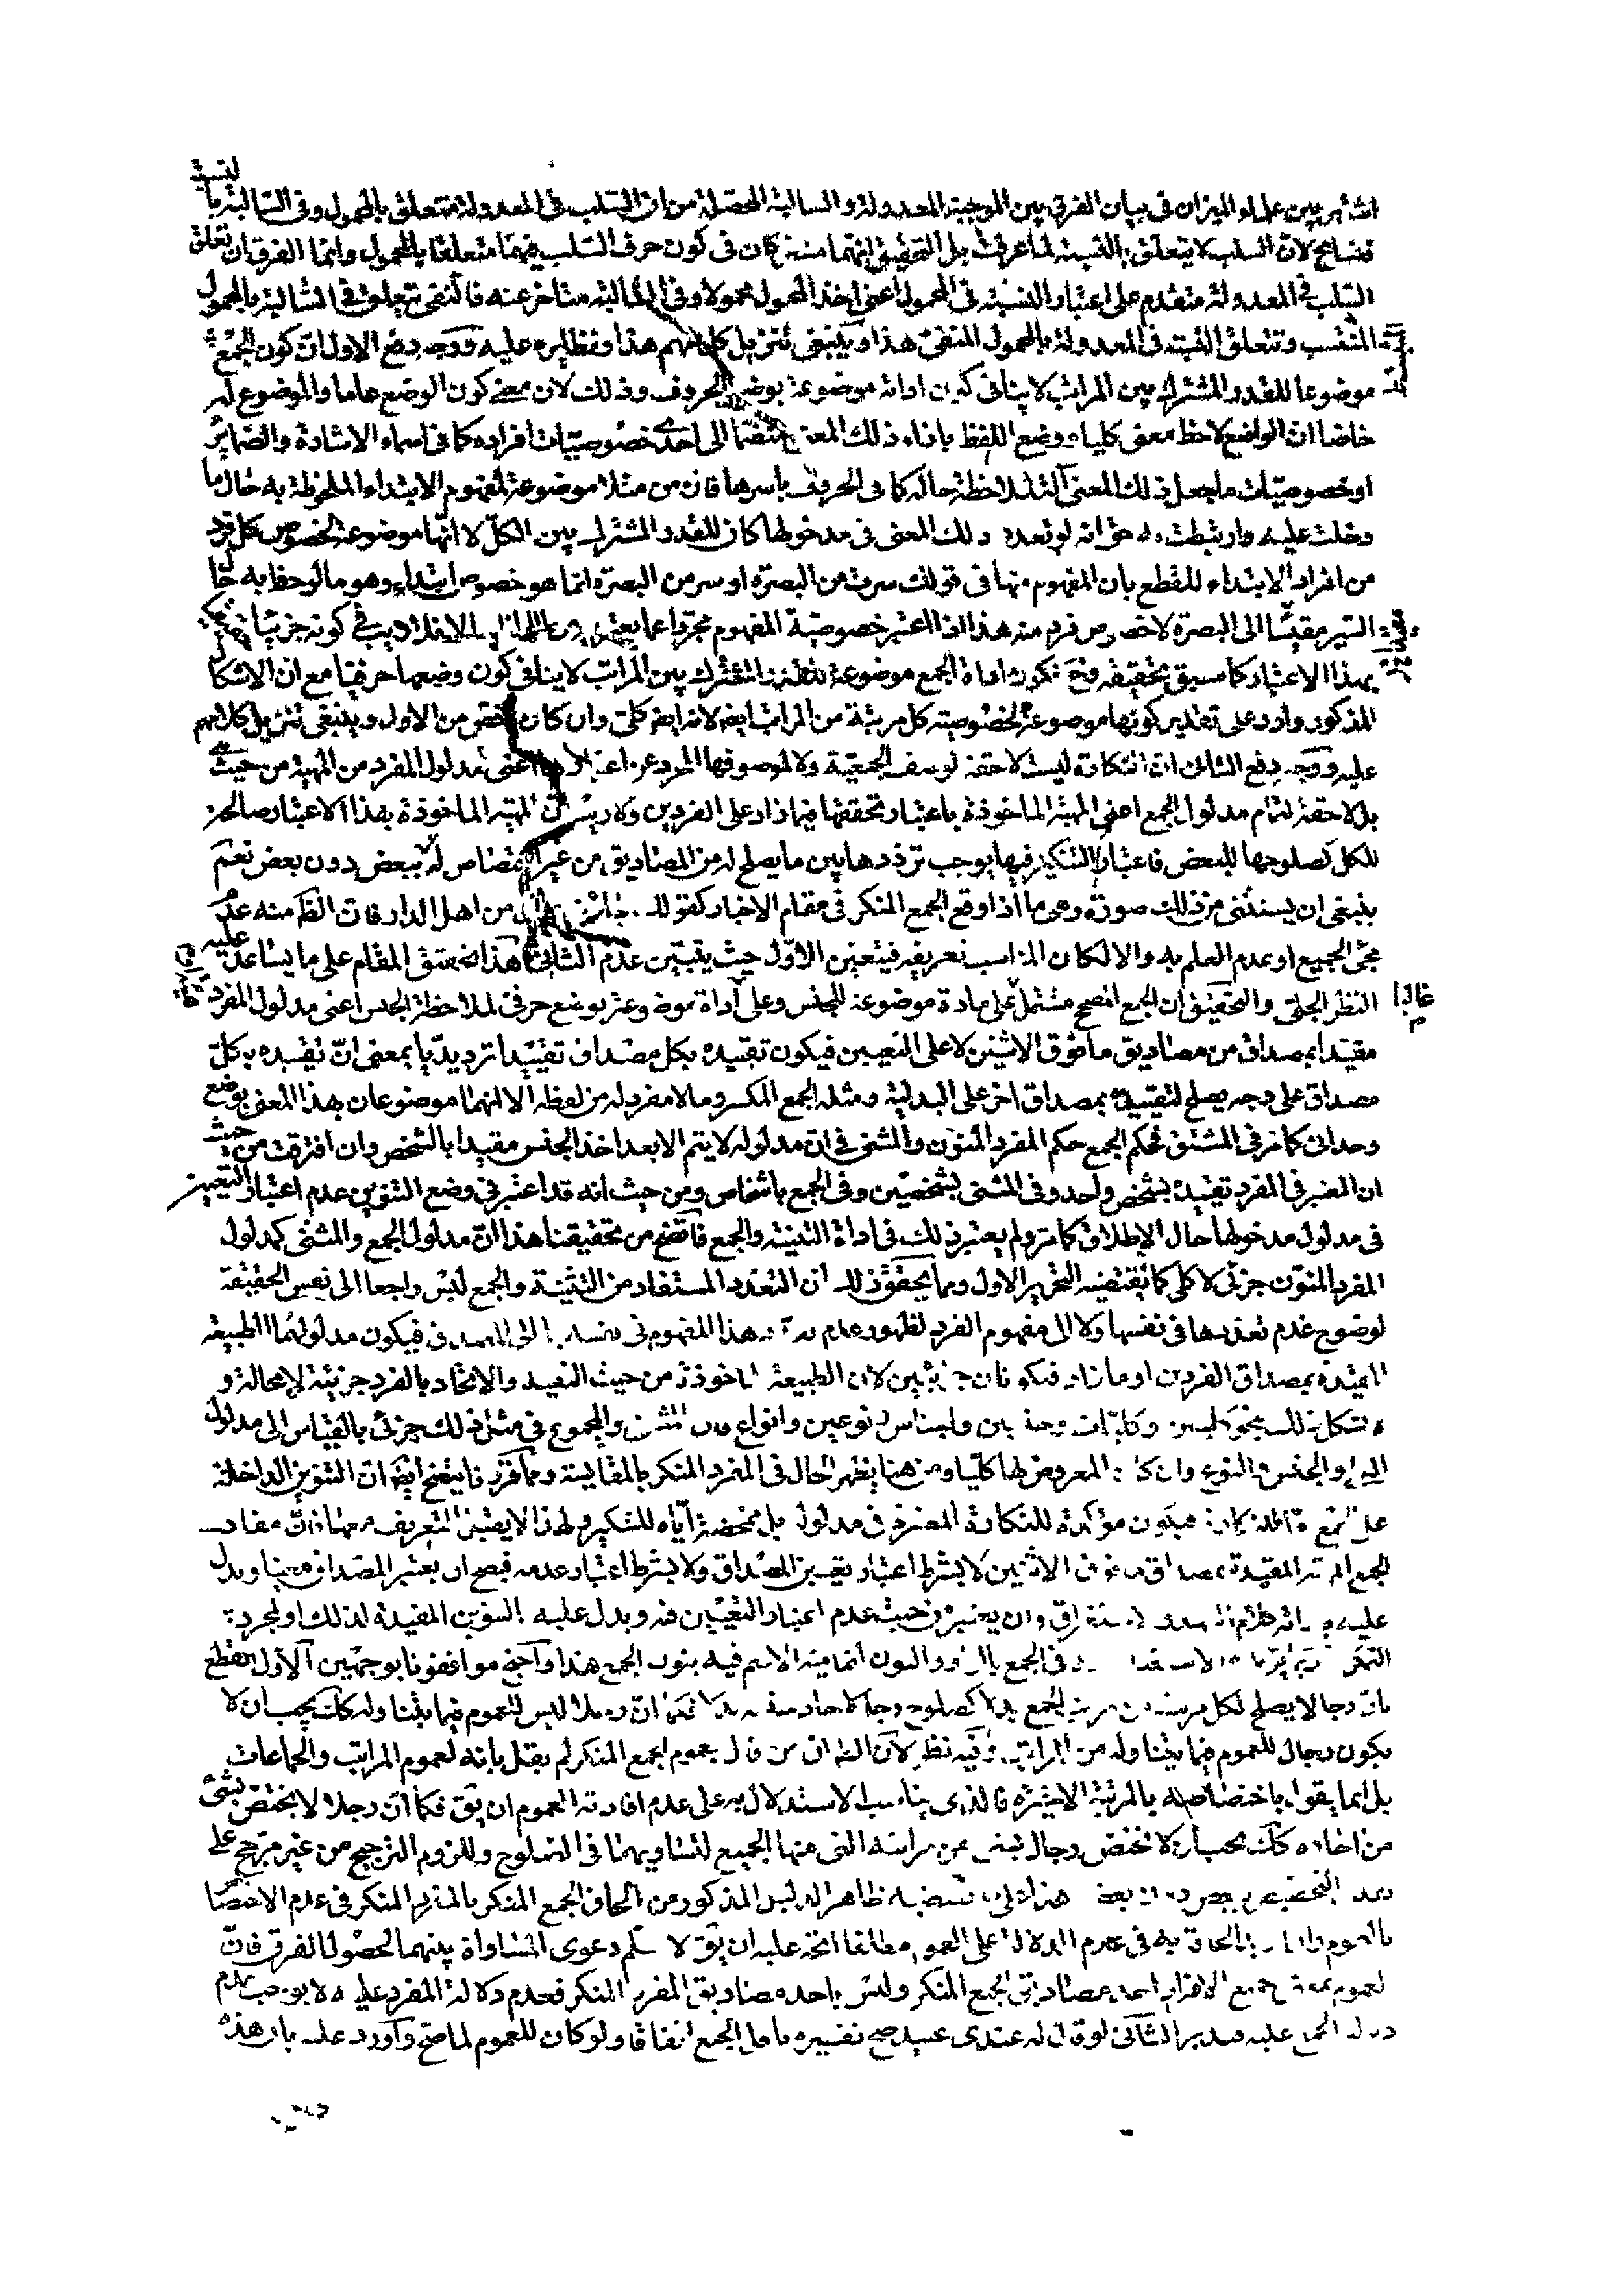 اشتهر بين علماء الميزان في بيان الفرق بين الموجبة المعدولة والسالبة المحصلة من ان السلب في المعدولة متعلق بالمحمول وفي السالبة بالنسبة
فتسامح لان السلب لا يتعلق بالنسبة لما عرفت بل التحقيق انهما مشتركان في كون حرف السلب فيهما متعلقا بالمحمول وانما الفرق ان تعلق
السلب في المعدولة متقدم على اعتبار النسبة في المحمول اعني اخذ المحمول محمولا وفي السالبة متاخر عنه فالنفي يتعلق في السالبة بالمحمول
المنتسب وتتعلق النسبة في المعدولة بالمحمول المنفي هذا وينبغي تنزيل كلامهم هذا ونظايره عليه ووجه دفع الاول ان كون الجمع
موضوعا للقدر المشترك بين المراتب لا ينافي كون اداته موضوعة بوضع الحروف وذلك لان معنى كون الوضع عاما والموضوع له
خاصا ان الواضع لاحظ معنى كليا ووضع اللفظ بازاء ذلك المعنى منضما الى احدى خصوصيات افراده كما في اسماء الاشارة والضماير
او خصوصيات ما يجعل ذلك المعنى آلة لملاحظة حاله كما في الحروف باسرها فان من مثلا موضوعة لمفهوم الابتداء الملحوظة به حال ما
دخلت عليه وارتبطت به حتى انه لو تعدد ذلك المعنى في مدخولها كان للقدر المشترك بين الكل لا انها موضوعة لخصوص كل فرد
من افراد الابتداء للقطع بان المفهوم منها في قولك سرت من البصرة او سر من البصرة انما هو خصوص ابتداء وهو ما لوحظ به حال
السير مقيسا الى البصرة لا خصوص فرد منه هذا اذا اعتبر خصوصية المفهوم مجردا عما يعتبر فلا ريب في كونه جزئيا
بهذا الاعتبار كما سبق تحقيقه وح فكون اداة الجمع موضوعة للقدر المشترك بين المراتب لا ينافي كون وضعها حرفيا مع ان الاشكال
المذكور وارد على تقدير كونها موضوعة لخصوصية كل مرتبة من المراتب ايضا لانه ايضا كلي وان كان اخص من الاول وينبغي تنزيل كلامهم
عليه ووجه دفع الثاني ان النكارة ليست لاحقة لوصف الجمعية ولا لموصوفها المجرد عن اعتبارها اعني مدلول المفرد من المهية من حيث هي
بل لاحقة لتمام مدلول الجمع اعني المهية الماخوذة باعتبار تحققها فيما زاد على الفردين ولا ريب ان المهية الماخوذة بهذا الاعتبار صالحة
للكل كصلوحها للبعض فاعتبار التنكير فيها يوجب ترددها بين ما يصلح له من المصاديق من غير اختصاص له ببعض دون بعض نعم
ينبغي ان يستثنى من ذلك صورة وهي ما اذا وقع الجمع المنكر في مقام الاخبار كقولك جائني رجال من اهل الدار فان الظ منه عدم
مجئ الجميع او عدم العلم به والا لكان المناسب تعريفه فيتعين الاول حيث يتبين عدم الثاني هذا تحقيق المقام على ما يساعد عليه
النظر الجلي والتحقيق ان الجمع المصحح مشتمل على مادة موضوعة للجنس وعلى اداة موضوعة بوضع حرفي لملاحظة الجنس اعني مدلول المفرد غالبا
مقيدا بمصداق من مصاديق ما فوق الاثنين لا على التعيين فيكون تقييده بكل مصداق تقييدا ترديديا بمعنى ان تقييده بكل
مصداق على وجه يصلح لتقييده بمصداق اخر على البدلية ومثله الجمع المكسر وما لا مفرد له من لفظه الا انهما موضوعان بهذا المعنى بوضع
وحداني كما مر في المشتق فحكم الجمع حكم المفرد المنون والمثنى في ان مدلوله لا يتم الا بعد اخذ الجنس مقيدا بالشخص وان افترقت من حيث
ان المعتبر في المفرد تقييده بشخص واحد وفي المثنى بشخصين وفي الجمع باشخاص ومن حيث انه قد اعتبر في وضع التنوين عدم اعتبار التعيين
في مدلول مدخولها حال الاطلاق كما مر ولم يعتبر ذلك في اداة التثنية والجمع فاتضح من تحقيقنا هذا ان مدلول الجمع والمثنى كمدلول
المفرد المنون جزئي لا كلي كما يقتضيه التحرير الاول ومما يحقق ذلك ان التعدد المستفاد من التثنية والجمع ليس راجعا الى نفس الحقيقة
لوضوح عدم تعددها في نفسها ولا الى مفهوم الفرد لظهور عدم تعدد هذا المفهوم في نفسه بل الى المصداق فيكون مدلولهما الطبيعة
المقيدة بمصداق الفردين او ما زاد فيكونان جزئيين لان الطبيعة الماخوذة من حيث التقييد والاتحاد بالفرد جزئية لا محالة و
يشكل ذلك بنحو وكليات وجنسين واجناس ونوعين وانواع فان المثنى والمجموع في مثل ذلك جزئي بالقياس الى مدلول
الكلي والجنس والنوع وان كان المعروض لها كليا ومن هنا يظهر الحال في المفرد المنكر بالمقايسة ومما قررنا يتضح ايضا ان التنوين الداخلة
على الجمع مؤكدة للنكارة المعتبرة في مدلوله بل ممحضة اياه للتنكير ولهذا لا يقبل التعريف معها فان مفاد
الجمع المقيدة بمصداق ما فوق الاثنين لا بشرط اعتبار تعيين المصداق ولا بشرط اعتبار عدمه فيصح ان يعتبر المصداق معينا ويدل
عليه وان يعتبر من حيث عدم اعتبار التعيين فيه ويدل عليه التنوين المفيدة لذلك او لمجرد
التمكن في الجمع بالواو والنون انما مية الاسم فيه بنون الجمع هذا واحتج موافقونا بوجهين الاول القطع
بان رجالا يصلح لكل مرتبة من مراتب الجمع بدلا كصلوح رجل لاحاد منه بدلا فكما ان رجلا ليس للعموم فيما يتناوله كك يجب ان لا
يكون رجال للعموم فيما يتناوله من المراتب وفيه نظر لان الظ ان من قال بعموم الجمع المنكر لم يقل بانه لعموم المراتب والجماعات
بل انما يقول باختصاصه بالمرتبة الاخيرة فالذي يناسب الاستدلال به على عدم افادته العموم ان يق فكما ان رجلا لا يختص بشئ
من احاده كك يجب ان لا يختص رجال بشئ من مراتبه التي منها الجميع لتساويهما في الصلوح وللزوم الترجيح من غير مرجح على
هذا ظاهر الدليل المذكور من الحاق الجمع المنكر بالمفرد المنكر في عدم الاختصاص
بالعموم الحاقه به في عدم الدلالة على العموم مطلقا اتجه عليه ان يق لا نسلم دعوى المساواة بينهما لحصول الفرق فان
العموم بمعنى جميع الافراد احد مصاديق الجمع المنكر وليس باحد مصاديق المفرد المنكر فعدم دلالة المفرد عليه لا يوجب عدم
دلالة الجمع عليه فتدبر الثاني لو قال له عندي عبيد صح تفسيره باقل الجمع اتفاقا ولو كان للعموم لما صح واورد عليه بان هذه